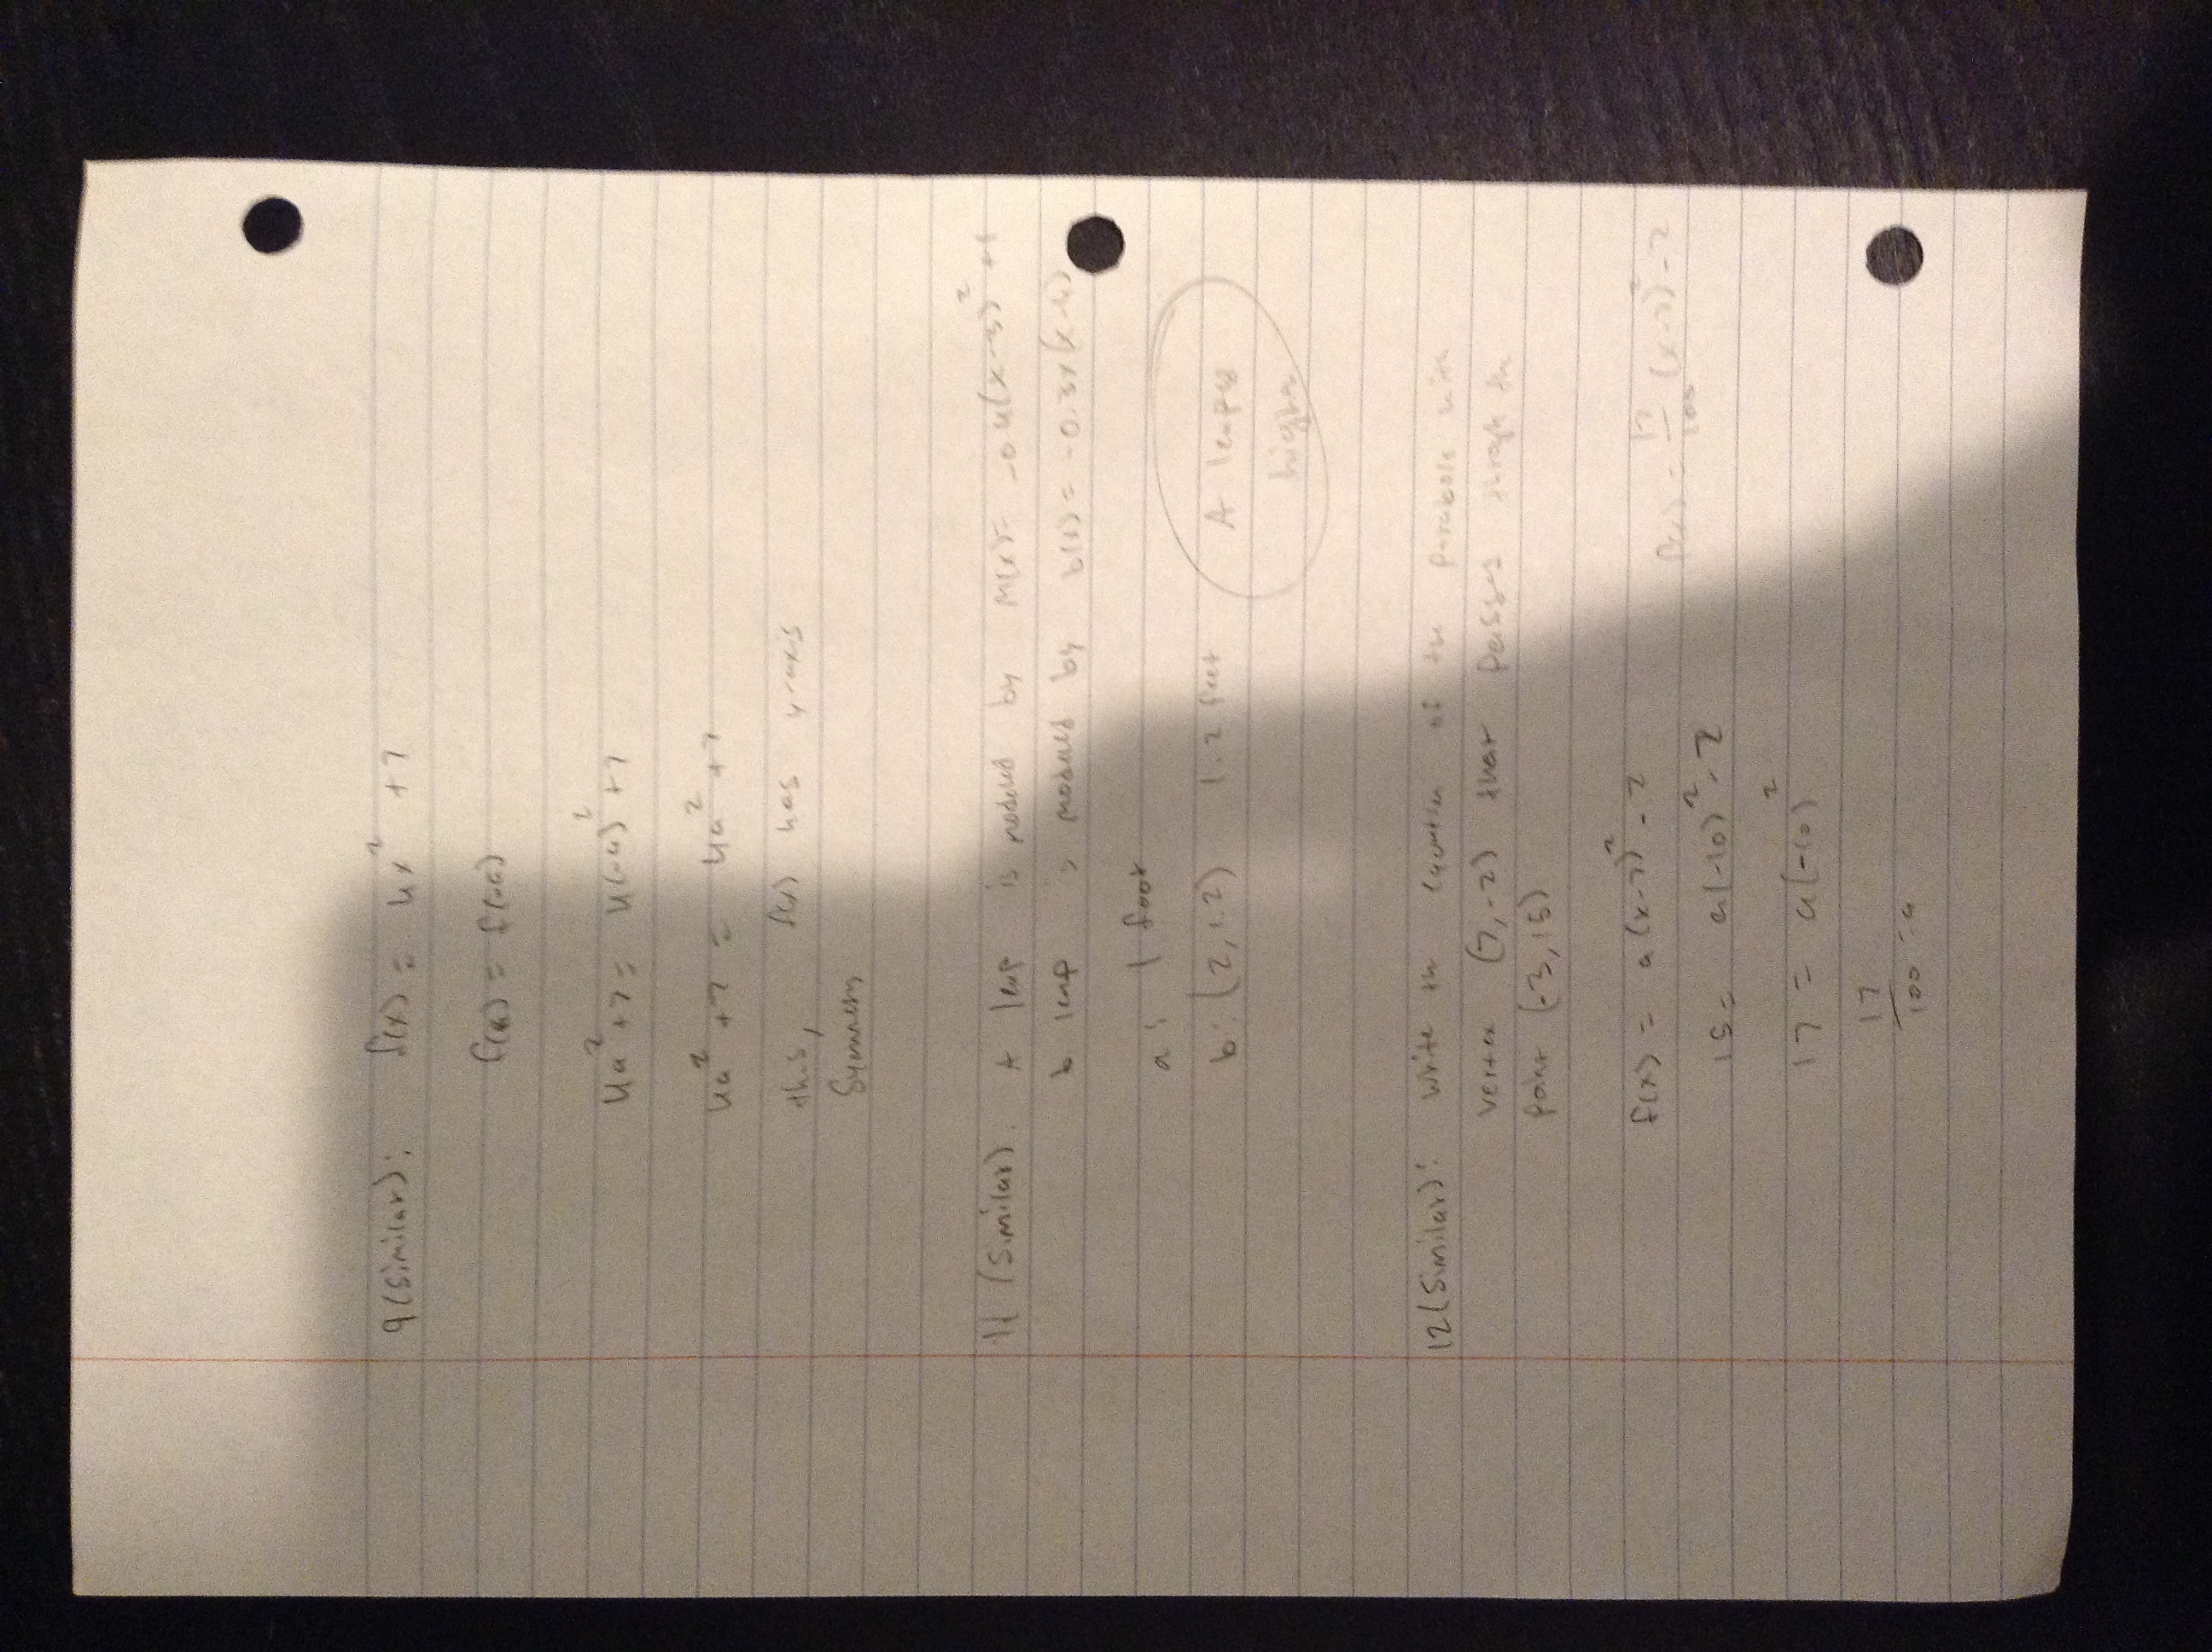 9 (Similar): f(x) = 4x² + 7
f(a) = f(-a)
4a² + 7 = 4(-a)² + 7
4a² + 7 = 4a² + 7
thus, f(x) has y-axis
Symmetry
11 (Similar). A leap is modeled by M(x) = -0.4(x-5)² +1
b leap is modeled by b(x) = -0.3x(x-4)
a: 1 foot
b: (2, 1.2) 1.2 feet
A leaps
higher
12 (Similar): Write the equation of the parabola with
vertex (7, -2) that passes through the
point (-3, 15)
f(x) = a(x-7)² - 2
f(x) = 17/100 (x-7)² - 2
15 = a(-10)² - 2
17 = a(-10)²
17/100 = a